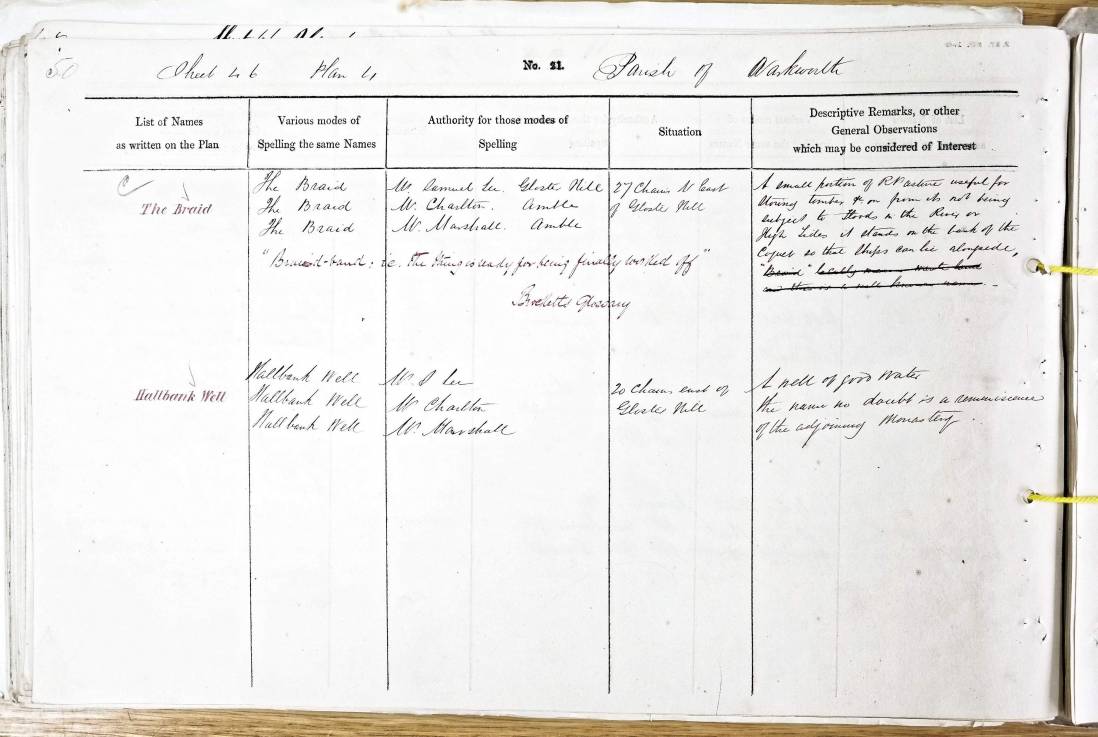 50 Sheet 46 Plan 4 No. 21. Parish of Warkworth
List of Names
as written on the Plan
Various modes of
Spelling the same Names
Authority for those modes of
Spelling
Situation
Descriptive Remarks, or other
General Observations
which may be considered of Interest
The Braid
The Braid
The Braid
The Braid
Mr. Samuel Lee. Gloster Hill
Mr. Charlton. Amble
Mr. Marshall. Amble
27 Chains N East
of Gloster Hill
A small portion of R Pasture useful for
storing timber &c on from its not being
subject to floods in the River or
High Tides it stands on the bank of the
Coquet so that Ships can lie alongside,
"Braid" locally means waste land
and this is a well known name.
"Braid-band: i.e. the thing is ready for being finally worked off"
Brockett's Glossary
Hallbank Well
Hallbank Well
Hallbank Well
Hallbank Well
Mr. S Lee
Mr Charlton
Mr. Marshall
20 Chains east of
Gloster Hill
A well of good Water
the name no doubt is a reminiscence
of the adjoining Monastery.